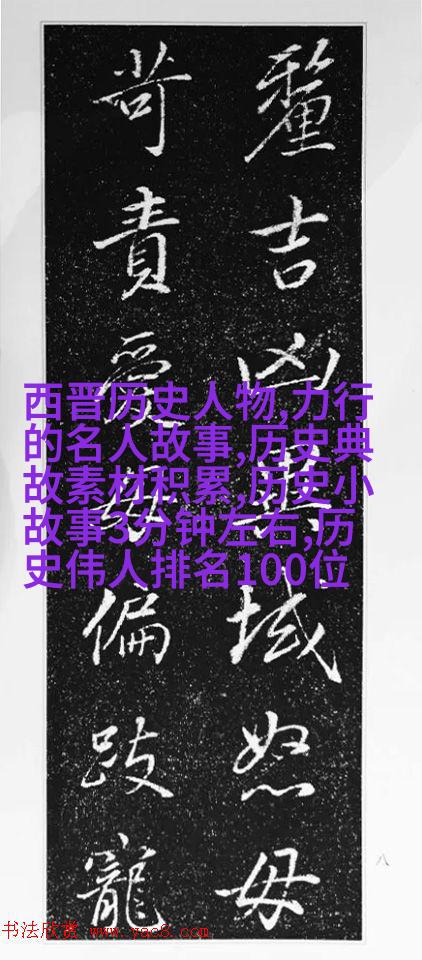 釐吉凶異域怒毋
苛責愛毋偏跛寵
西晋历史人物,力行
的名人故事,历史典
故素材积累,历史小
故事3分钟左右,历
史伟人排名100位
八
书法欣赏 www.yac8.com